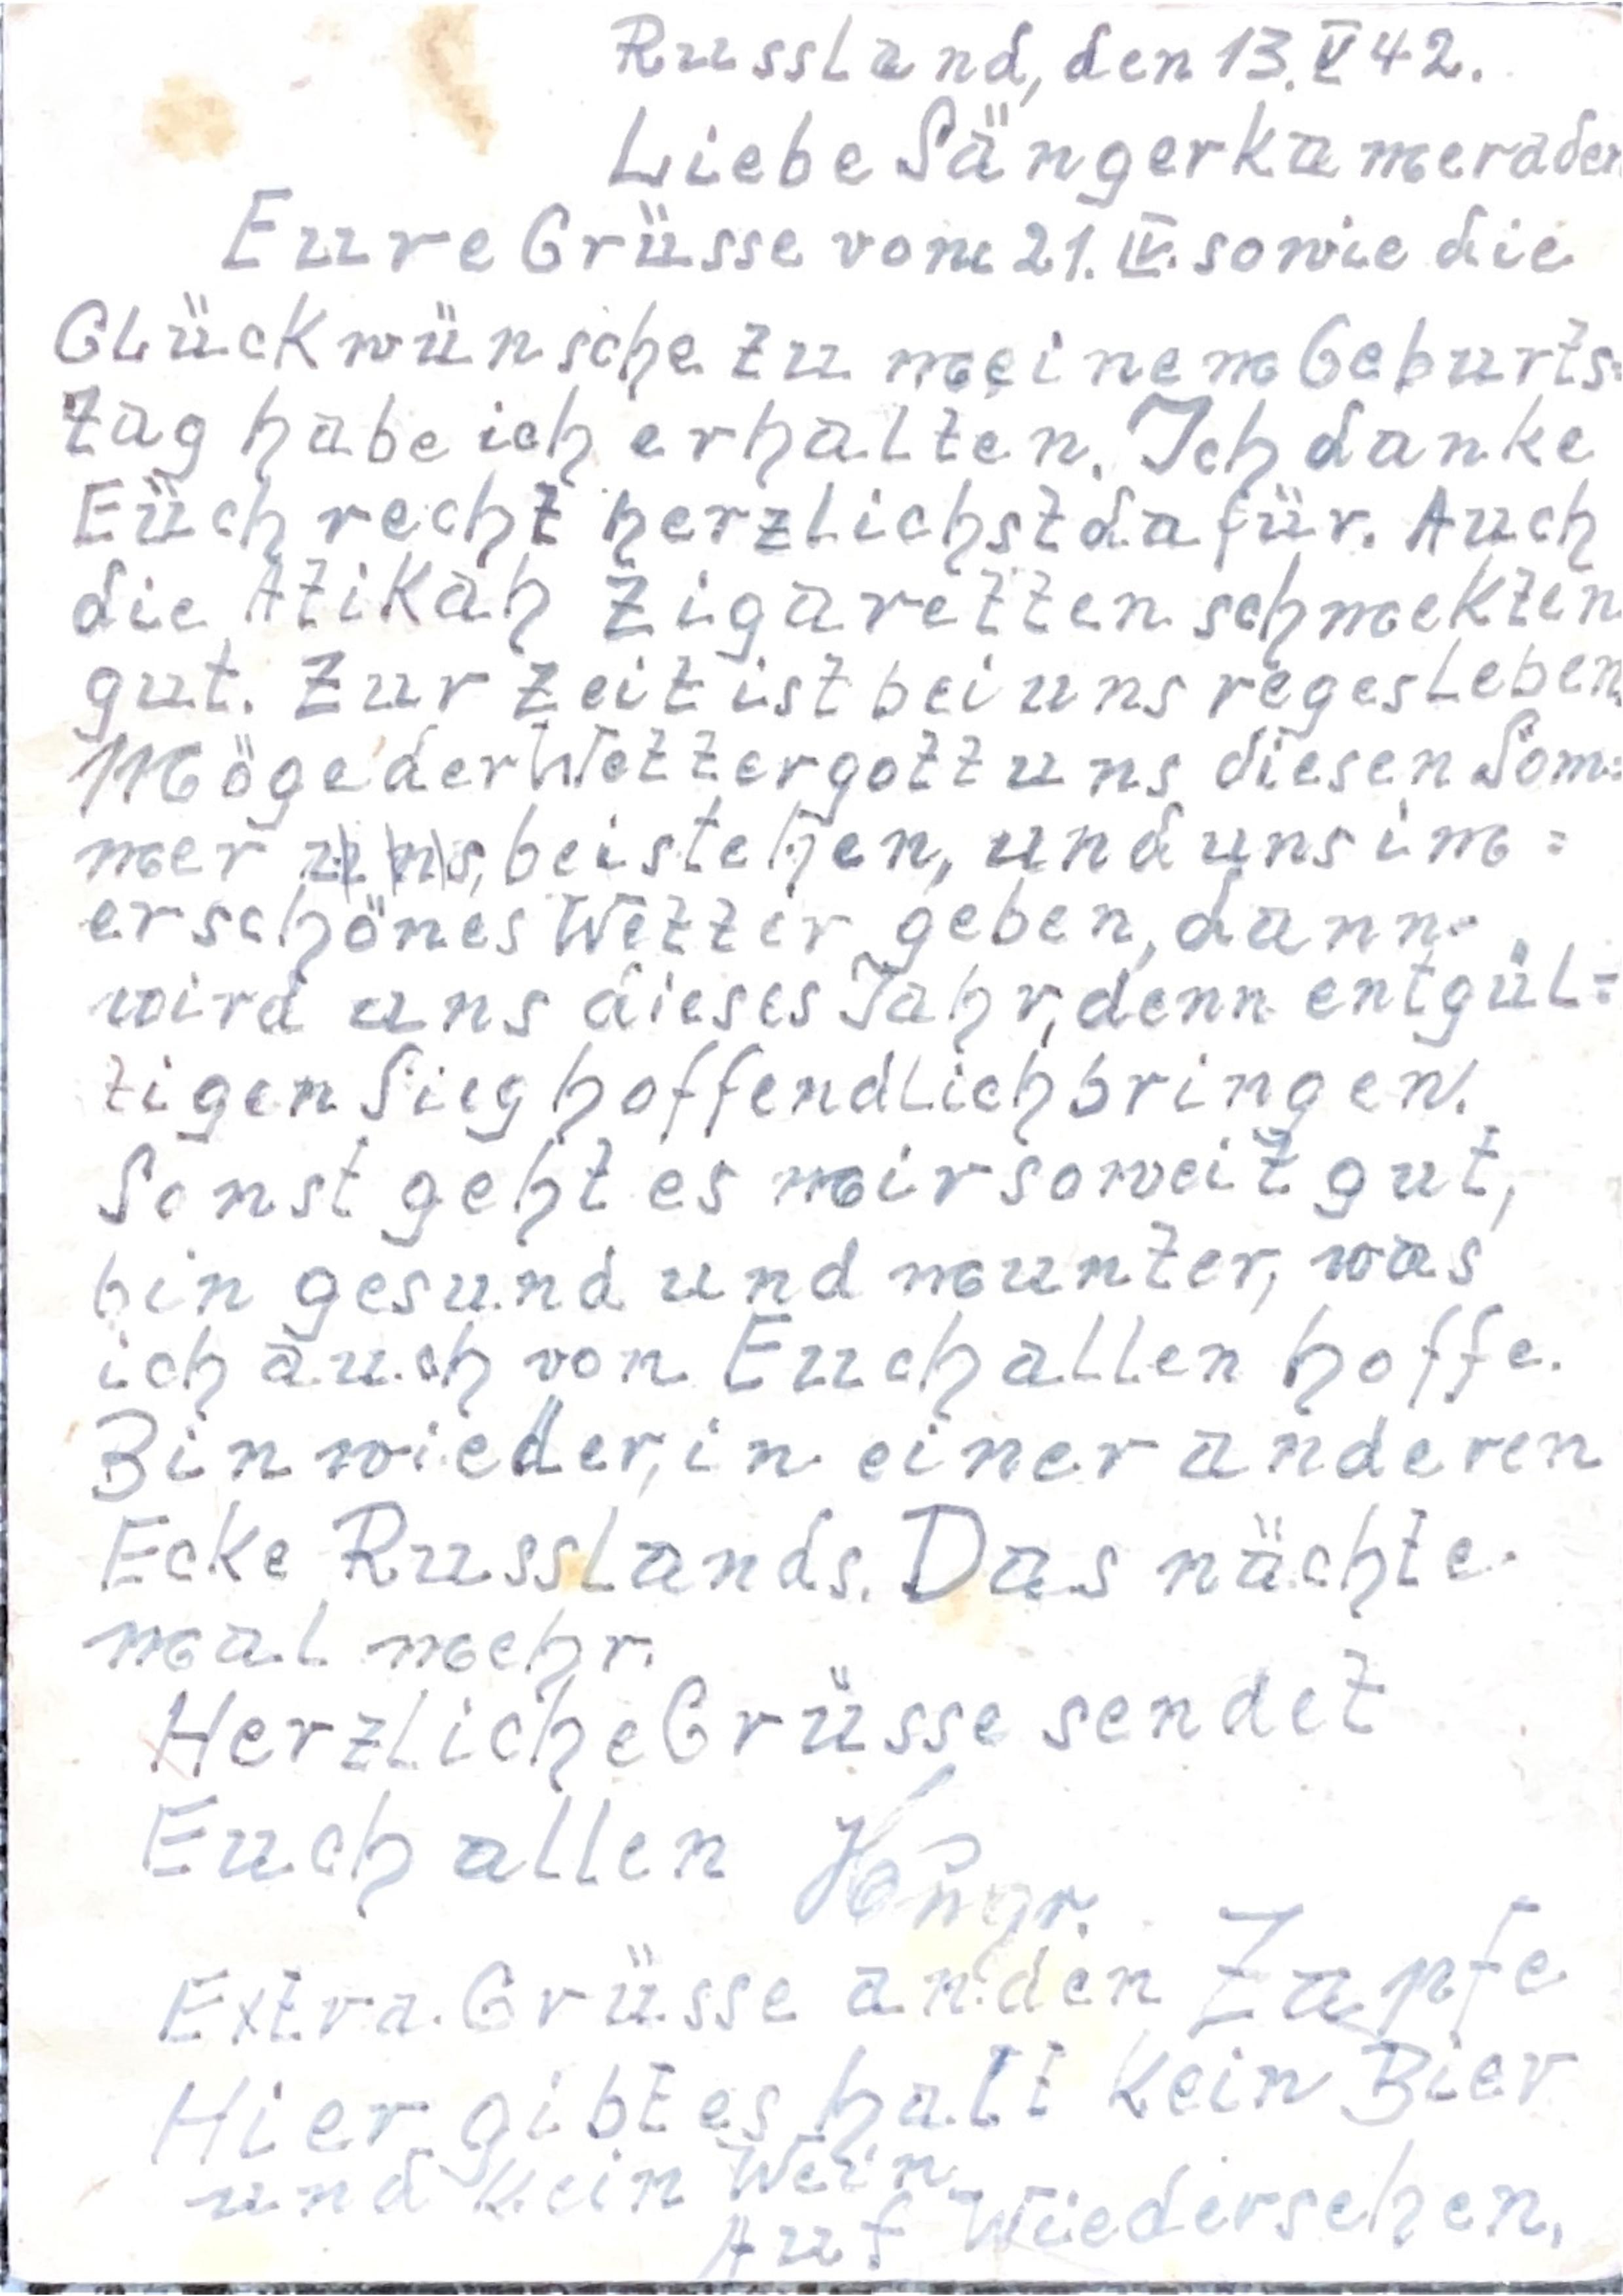 Russland, den 13. V 42.
Liebe Sängerkameraden
Eure Grüsse vom 21. IV. sowie die
Glückwünsche zu meinem Geburts=
tag habe ich erhalten. Ich danke
Eüch recht herzlichst dafür. Auch
die Atikah Zigaretten schmekten
gut. Zur Zeit ist bei uns reges Leben.
Möge der Wettergott uns diesen Som=
mer uns, beistehen, und uns im=
er schönes Wetter geben, dann
wird uns dieses Jahr, denn entgül=
tigen Sieg hoffendlich bringen.
Sonst geht es mir soweit gut,
bin gesund und munter, was
ich auch von Euch allen hoffe.
Bin wieder, in einer anderen
Ecke Russlands. Das nächte
mal mehr.
Herzliche Grüsse sendet
Euch allen
Extra Grüsse an den Zapfe
Hier gibt es halt kein Bier
und kein Wein
Auf Wiedersehen.